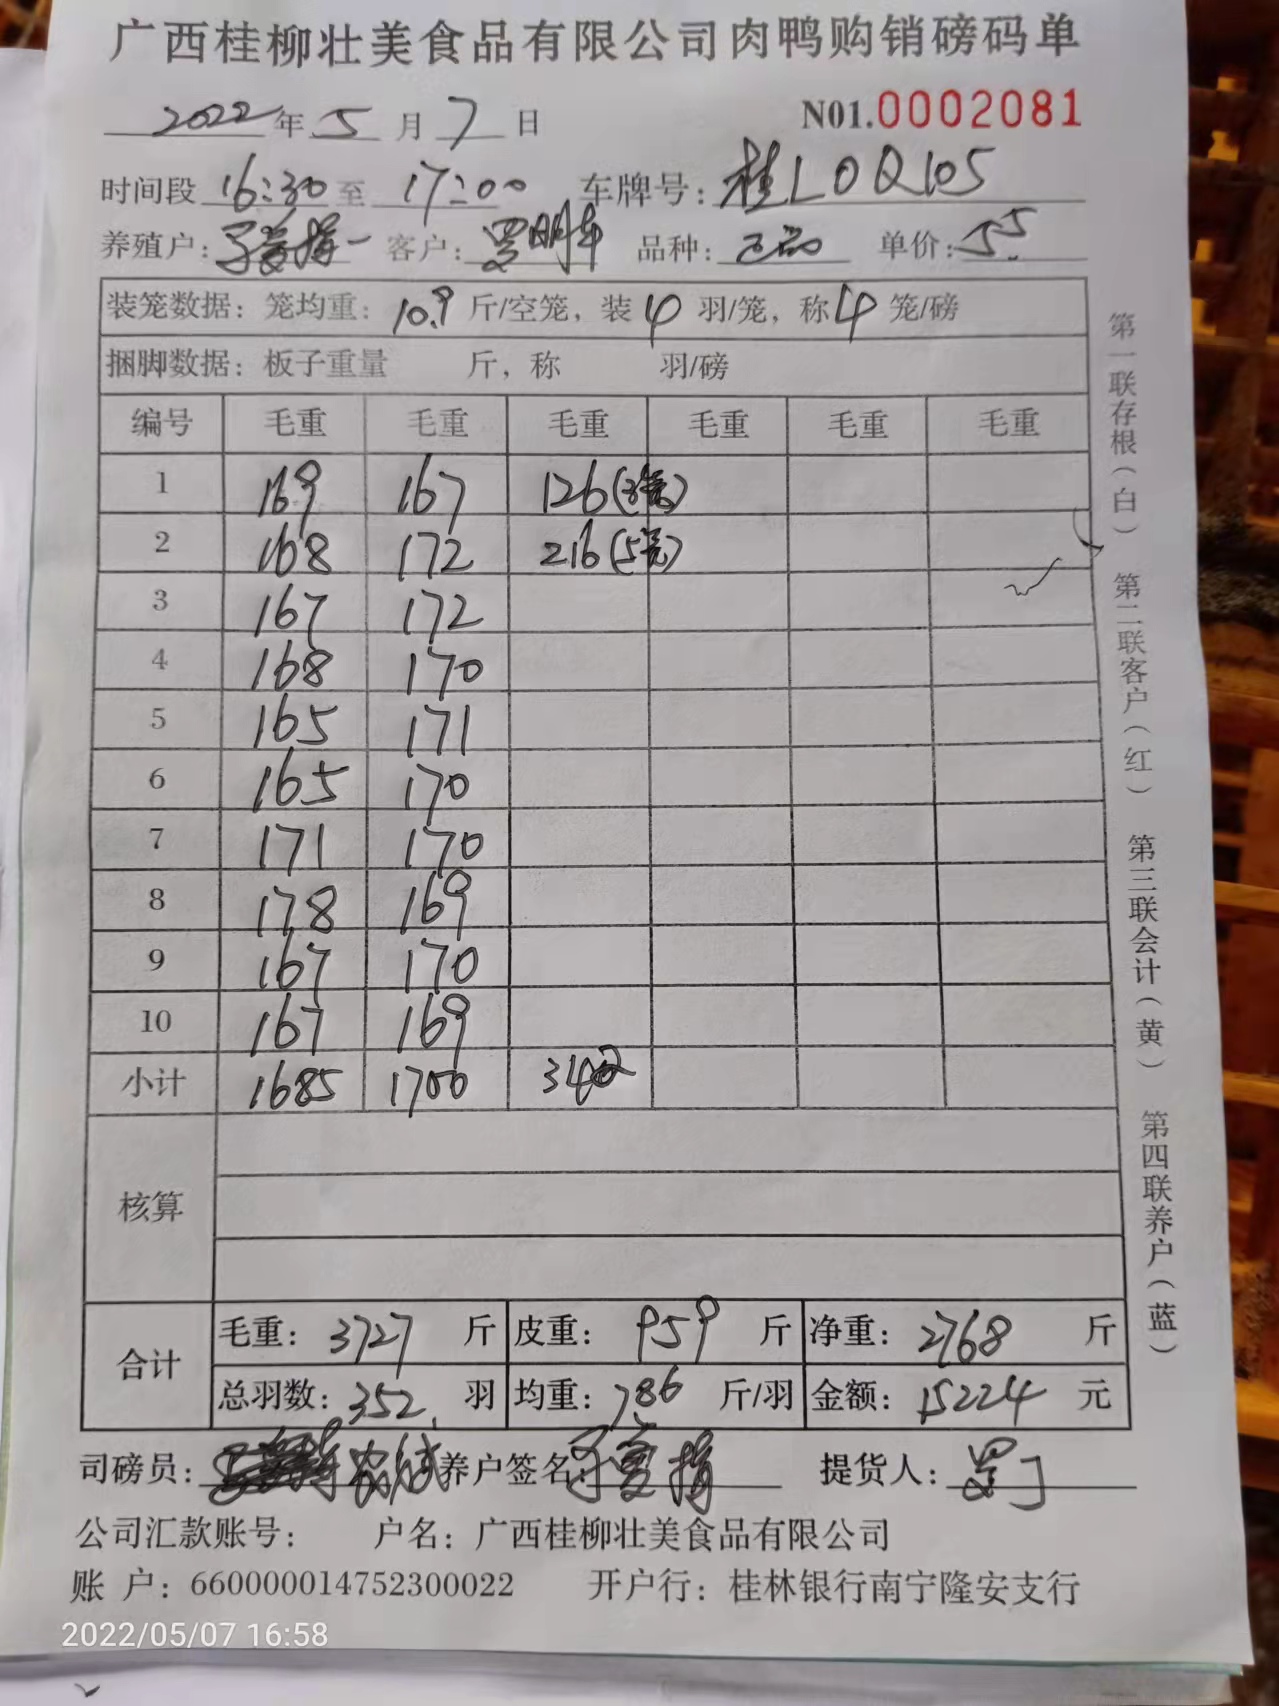 广西桂柳壮美食品有限公司肉鸭购销磅码单
2022年5月7日 N01.0002081
时间段16:30至17:00 车牌号:桂L0Q105
养殖户: 客户:罗明车 品种:正品 单价:5.5
装笼数据:笼均重:10.9斤/空笼,装4羽/笼,称4笼/磅
捆脚数据:板子重量 斤,称 羽/磅
编号 毛重 毛重 毛重 毛重 毛重 毛重
1 169 167 126(3笼)
2 168 172 216(5笼)
3 167 172
4 168 170
5 165 171
6 165 170
7 171 170
8 178 169
9 167 170
10 167 169
小计 1685 1700 342
核算
合计 毛重:3727斤 皮重:959斤 净重:2768斤
总羽数:352羽 均重:7.86斤/羽 金额:15224元
司磅员: 养户签名: 提货人:
公司汇款账号: 户名:广西桂柳壮美食品有限公司
账户:660000014752300022 开户行:桂林银行南宁隆安支行
第一联存根(白) 第二联客户(红) 第三联会计(黄) 第四联养户(蓝)
2022/05/07 16:58